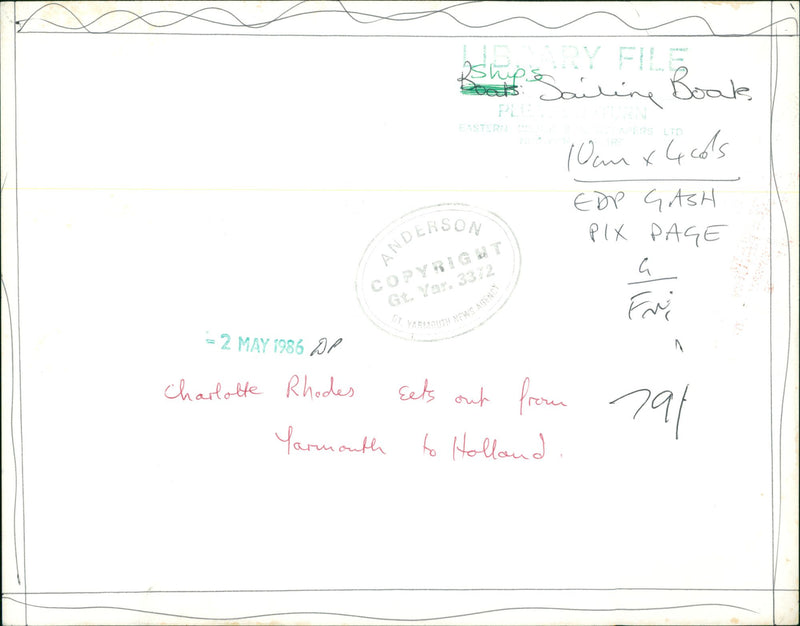 LIBRARY FILE
Ships
Boats: Sailing Boats
PLEASE RETURN
10cm x 4 cols
EDP GASH
PIX PAGE
G
Fri
ANDERSON
COPYRIGHT
Gt. Yar. 3372
GT. YARMOUTH NEWS AGENCY
-2 MAY 1986 DP
Charlotte Rhodes sets out from
Yarmouth to Holland.
79/